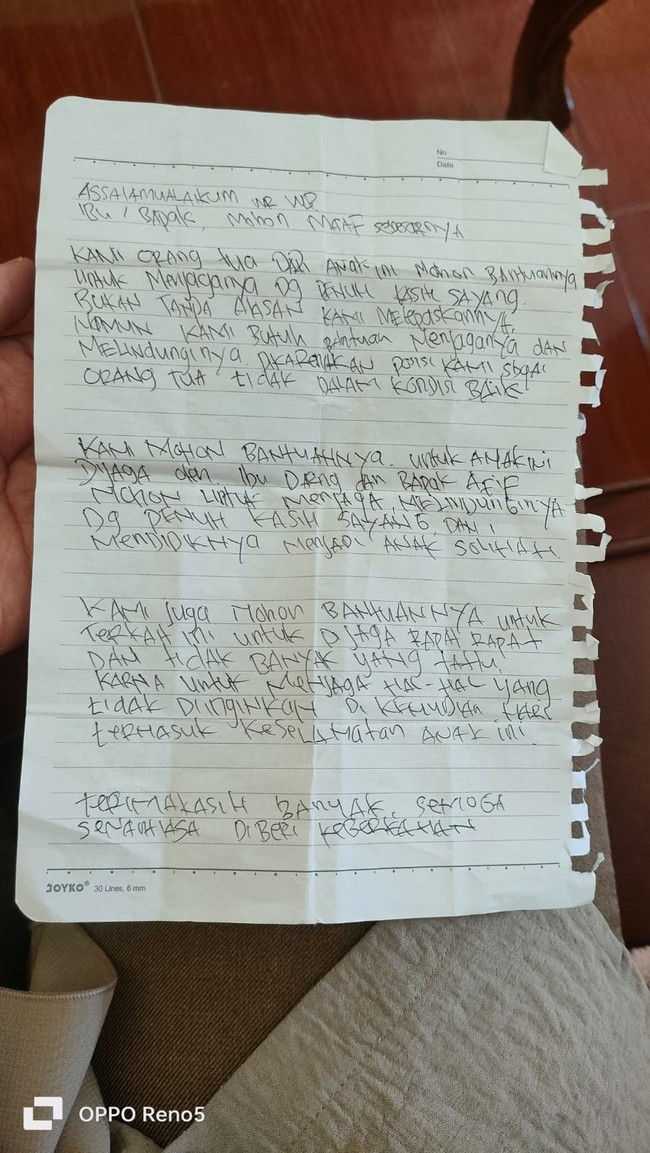 No
Date
ASSALAMUALAIKUM WR WB.
IBU / BAPAK, MOHON MAAF SEBESARNYA
KAMI ORANG TUA DARI ANAK INI MOHON BANTUANNYA
UNTUK MENJAGANYA DG PENUH KASIH SAYANG.
BUKAN TANPA ALASAN KAMI MELEPASKANNYA,
NAMUN KAMI BUTUH BANTUAN MENJAGANYA DAN
MELINDUNGINYA DIKARENAKAN POSISI KAMI SBGAI
ORANG TUA TIDAK DALAM KONDISI BAIK
KAMI MOHON BANTUANNYA UNTUK ANAK INI
DIJAGA OLEH IBU DAN BAPAK
MOHON UNTUK MENJAGA, MELINDUNGINYA
DG PENUH KASIH SAYANG DAN
MENDIDIKNYA MENJADI ANAK SOLIHAH
KAMI JUGA MOHON BANTUANNYA UNTUK
TERKAIT INI UNTUK DIJAGA RAPAT RAPAT
DAN TIDAK BANYAK YANG TAHU.
KARNA UNTUK MENJAGA HAL-HAL YANG
TIDAK DIINGINKAN DI KEMUDIAN HARI
TERMASUK KESELAMATAN ANAK INI.
TERIMAKASIH BANYAK, SEMOGA
SENANTIASA DIBERI KEBERKAHAN
JOYKO® 30 Lines, 6 mm
OPPO Reno5